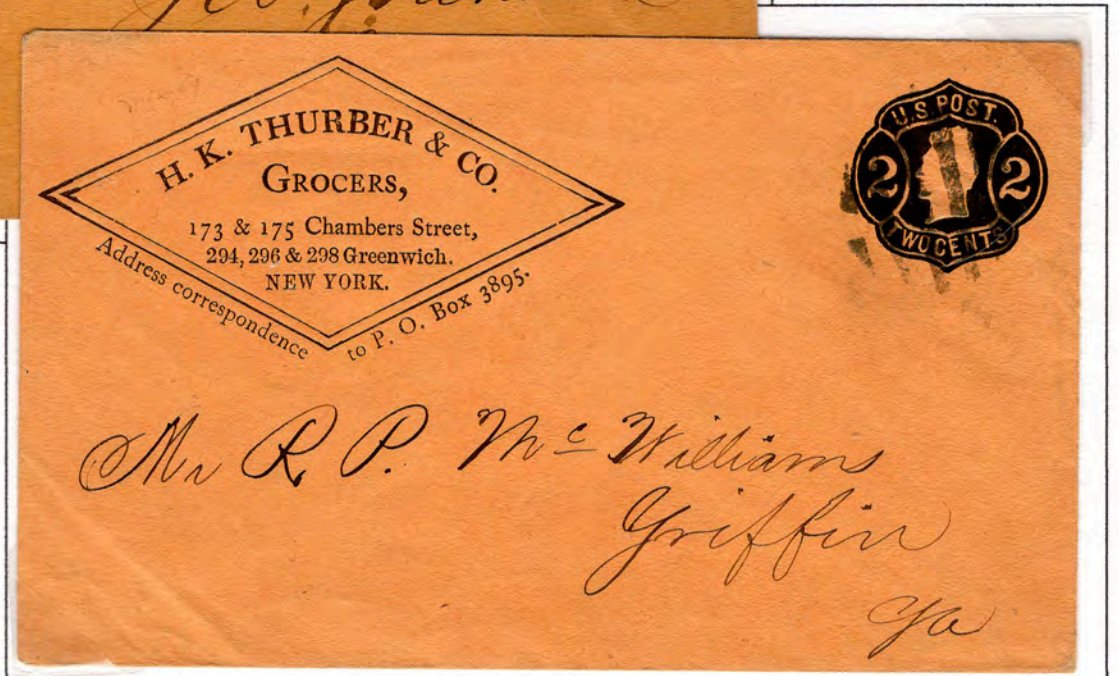 H. K. THURBER & CO.
GROCERS,
173 & 175 Chambers Street,
294, 296 & 298 Greenwich.
NEW YORK.
Address correspondence to P. O. Box 3895.
U.S POST.
2 2
TWO CENTS
Mr R. P. Mc Williams
Griffin
Ga